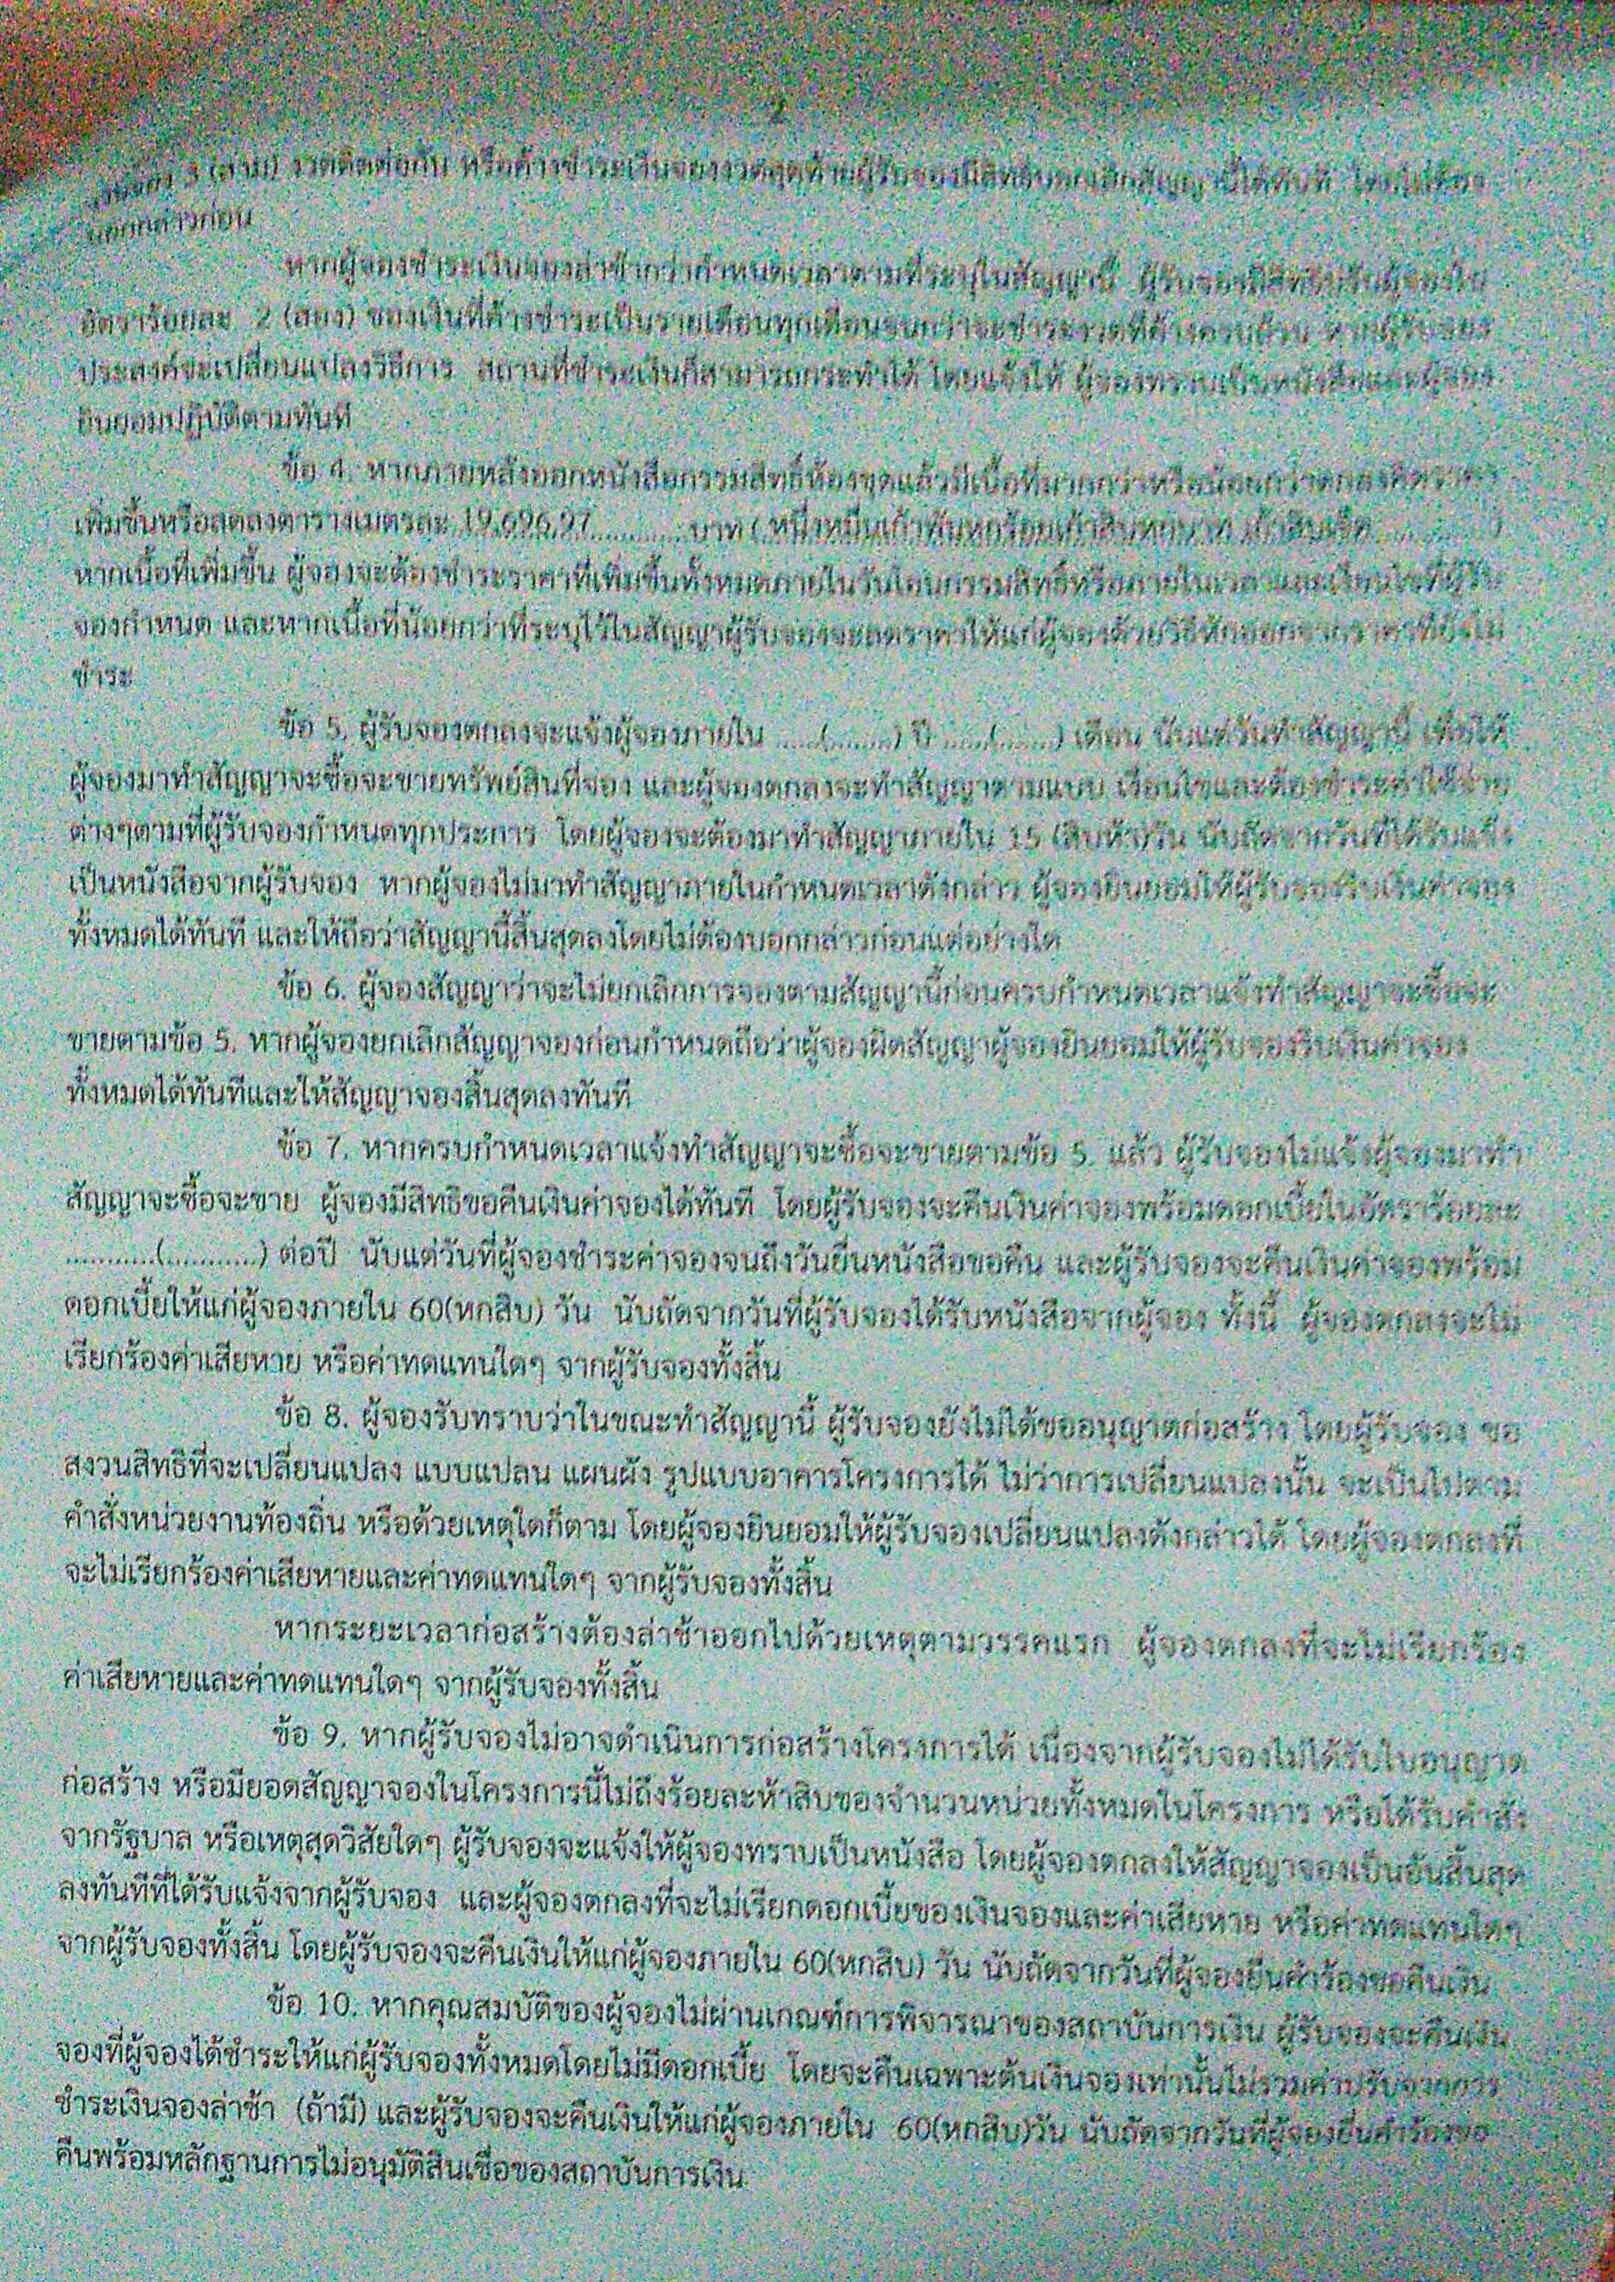 2
3 (สาม) งวดติดต่อกัน หรือค้างชำระเงินจองงวดสุดท้ายผู้รับจองมีสิทธิบอกเลิกสัญญานี้ได้ทันที โดยไม่ต้อง
บอกกล่าวก่อน
หากผู้จองชำระเงินจองล่าช้ากว่ากำหนดเวลาตามที่ระบุในสัญญานี้ ผู้รับจองมีสิทธิ
อัตราร้อยละ 2 (สอง) ของเงินที่ค้างชำระเป็นรายเดือนทุกเดือนจนกว่าจะชำระงวดที่ค้างครบถ้วน หากผู้รับจอง
ประสงค์จะเปลี่ยนแปลงวิธีการ สถานที่ชำระเงินก็สามารถกระทำได้ โดยแจ้งให้ ผู้จองทราบเป็นหนังสือและผู้จอง
ยินยอมปฏิบัติตามทันที
ข้อ 4. หากภายหลังออกหนังสือกรรมสิทธิ์ห้องชุดแล้วมีเนื้อที่มากกว่าหรือน้อยกว่าตกลงคิดราคา
เพิ่มขึ้นหรือลดลงตารางเมตรละ 19,696.97 ............ บาท ( หนึ่งหมื่นเก้าพันหกร้อยเก้าสิบหกบาท เก้าสิบเจ็ด
หากเนื้อที่เพิ่มขึ้น ผู้จองจะต้องชำระราคาที่เพิ่มขึ้นทั้งหมดภายในวันโอนกรรมสิทธิ์หรือภายในเวลาและเงื่อนไขที่ผู้รับ
จองกำหนด และหากเนื้อที่น้อยกว่าที่ระบุไว้ในสัญญาผู้รับจองจะลดราคาให้แก่ผู้จองด้วยวิธีหักออกจากราคาที่ยังไม่
ชำระ
ข้อ 5. ผู้รับจองตกลงจะแจ้งผู้จองภายใน ......(.........) ปี ......(.........) เดือน นับแต่วันทำสัญญานี้ เพื่อให้
ผู้จองมาทำสัญญาจะซื้อจะขายทรัพย์สินที่จอง และผู้จองตกลงจะทำสัญญาตามแบบ เงื่อนไขและต้องชำระค่าใช้จ่าย
ต่างๆตามที่ผู้รับจองกำหนดทุกประการ โดยผู้จองจะต้องมาทำสัญญาภายใน 15 (สิบห้า)วัน นับถัดจากวันที่ได้รับแจ้ง
เป็นหนังสือจากผู้รับจอง หากผู้จองไม่มาทำสัญญาภายในกำหนดเวลาดังกล่าว ผู้จองยินยอมให้ผู้รับจองริบเงินค่าจอง
ทั้งหมดได้ทันที และให้ถือว่าสัญญานี้สิ้นสุดลงโดยไม่ต้องบอกกล่าวก่อนแต่อย่างใด
ข้อ 6. ผู้จองสัญญาว่าจะไม่ยกเลิกการจองตามสัญญานี้ก่อนครบกำหนดเวลาแจ้งทำสัญญาจะซื้อจะ
ขายตามข้อ 5. หากผู้จองยกเลิกสัญญาจองก่อนกำหนดถือว่าผู้จองผิดสัญญาผู้จองยินยอมให้ผู้รับจองริบเงินค่าจอง
ทั้งหมดได้ทันทีและให้สัญญาจองสิ้นสุดลงทันที
ข้อ 7. หากครบกำหนดเวลาแจ้งทำสัญญาจะซื้อจะขายตามข้อ 5. แล้ว ผู้รับจองไม่แจ้งผู้จองมาทำ
สัญญาจะซื้อจะขาย ผู้จองมีสิทธิขอคืนเงินค่าจองได้ทันที โดยผู้รับจองจะคืนเงินค่าจองพร้อมดอกเบี้ยในอัตราร้อยละ
............(............) ต่อปี นับแต่วันที่ผู้จองชำระค่าจองจนถึงวันยื่นหนังสือขอคืน และผู้รับจองจะคืนเงินค่าจองพร้อม
ดอกเบี้ยให้แก่ผู้จองภายใน 60(หกสิบ) วัน นับถัดจากวันที่ผู้รับจองได้รับหนังสือจากผู้จอง ทั้งนี้ ผู้จองตกลงจะไม่
เรียกร้องค่าเสียหาย หรือค่าทดแทนใดๆ จากผู้รับจองทั้งสิ้น
ข้อ 8. ผู้จองรับทราบว่าในขณะทำสัญญานี้ ผู้รับจองยังไม่ได้ขออนุญาตก่อสร้าง โดยผู้รับจอง ขอ
สงวนสิทธิที่จะเปลี่ยนแปลง แบบแปลน แผนผัง รูปแบบอาคารโครงการได้ ไม่ว่าการเปลี่ยนแปลงนั้น จะเป็นไปตาม
คำสั่งหน่วยงานท้องถิ่น หรือด้วยเหตุใดก็ตาม โดยผู้จองยินยอมให้ผู้รับจองเปลี่ยนแปลงดังกล่าวได้ โดยผู้จองตกลงที่
จะไม่เรียกร้องค่าเสียหายและค่าทดแทนใดๆ จากผู้รับจองทั้งสิ้น
หากระยะเวลาก่อสร้างต้องล่าช้าออกไปด้วยเหตุตามวรรคแรก ผู้จองตกลงที่จะไม่เรียกร้อง
ค่าเสียหายและค่าทดแทนใดๆ จากผู้รับจองทั้งสิ้น
ข้อ 9. หากผู้รับจองไม่อาจดำเนินการก่อสร้างโครงการได้ เนื่องจากผู้รับจองไม่ได้รับใบอนุญาต
ก่อสร้าง หรือมียอดสัญญาจองในโครงการนี้ไม่ถึงร้อยละห้าสิบของจำนวนหน่วยทั้งหมดในโครงการ หรือได้รับคำสั่ง
จากรัฐบาล หรือเหตุสุดวิสัยใดๆ ผู้รับจองจะแจ้งให้ผู้จองทราบเป็นหนังสือ โดยผู้จองตกลงให้สัญญาจองเป็นอันสิ้นสุด
ลงทันทีที่ได้รับแจ้งจากผู้รับจอง และผู้จองตกลงที่จะไม่เรียกดอกเบี้ยของเงินจองและค่าเสียหาย หรือค่าทดแทนใดๆ
จากผู้รับจองทั้งสิ้น โดยผู้รับจองจะคืนเงินให้แก่ผู้จองภายใน 60(หกสิบ) วัน นับถัดจากวันที่ผู้จองยื่นคำร้องขอคืนเงิน
ข้อ 10. หากคุณสมบัติของผู้จองไม่ผ่านเกณฑ์การพิจารณาของสถาบันการเงิน ผู้รับจองจะคืนเงิน
จองที่ผู้จองได้ชำระให้แก่ผู้รับจองทั้งหมดโดยไม่มีดอกเบี้ย โดยจะคืนเฉพาะต้นเงินจองเท่านั้นไม่รวมค่าปรับจากการ
ชำระเงินจองล่าช้า (ถ้ามี) และผู้รับจองจะคืนเงินให้แก่ผู้จองภายใน 60(หกสิบ)วัน นับถัดจากวันที่ผู้จองยื่นคำร้องขอ
คืนพร้อมหลักฐานการไม่อนุมัติสินเชื่อของสถาบันการเงิน